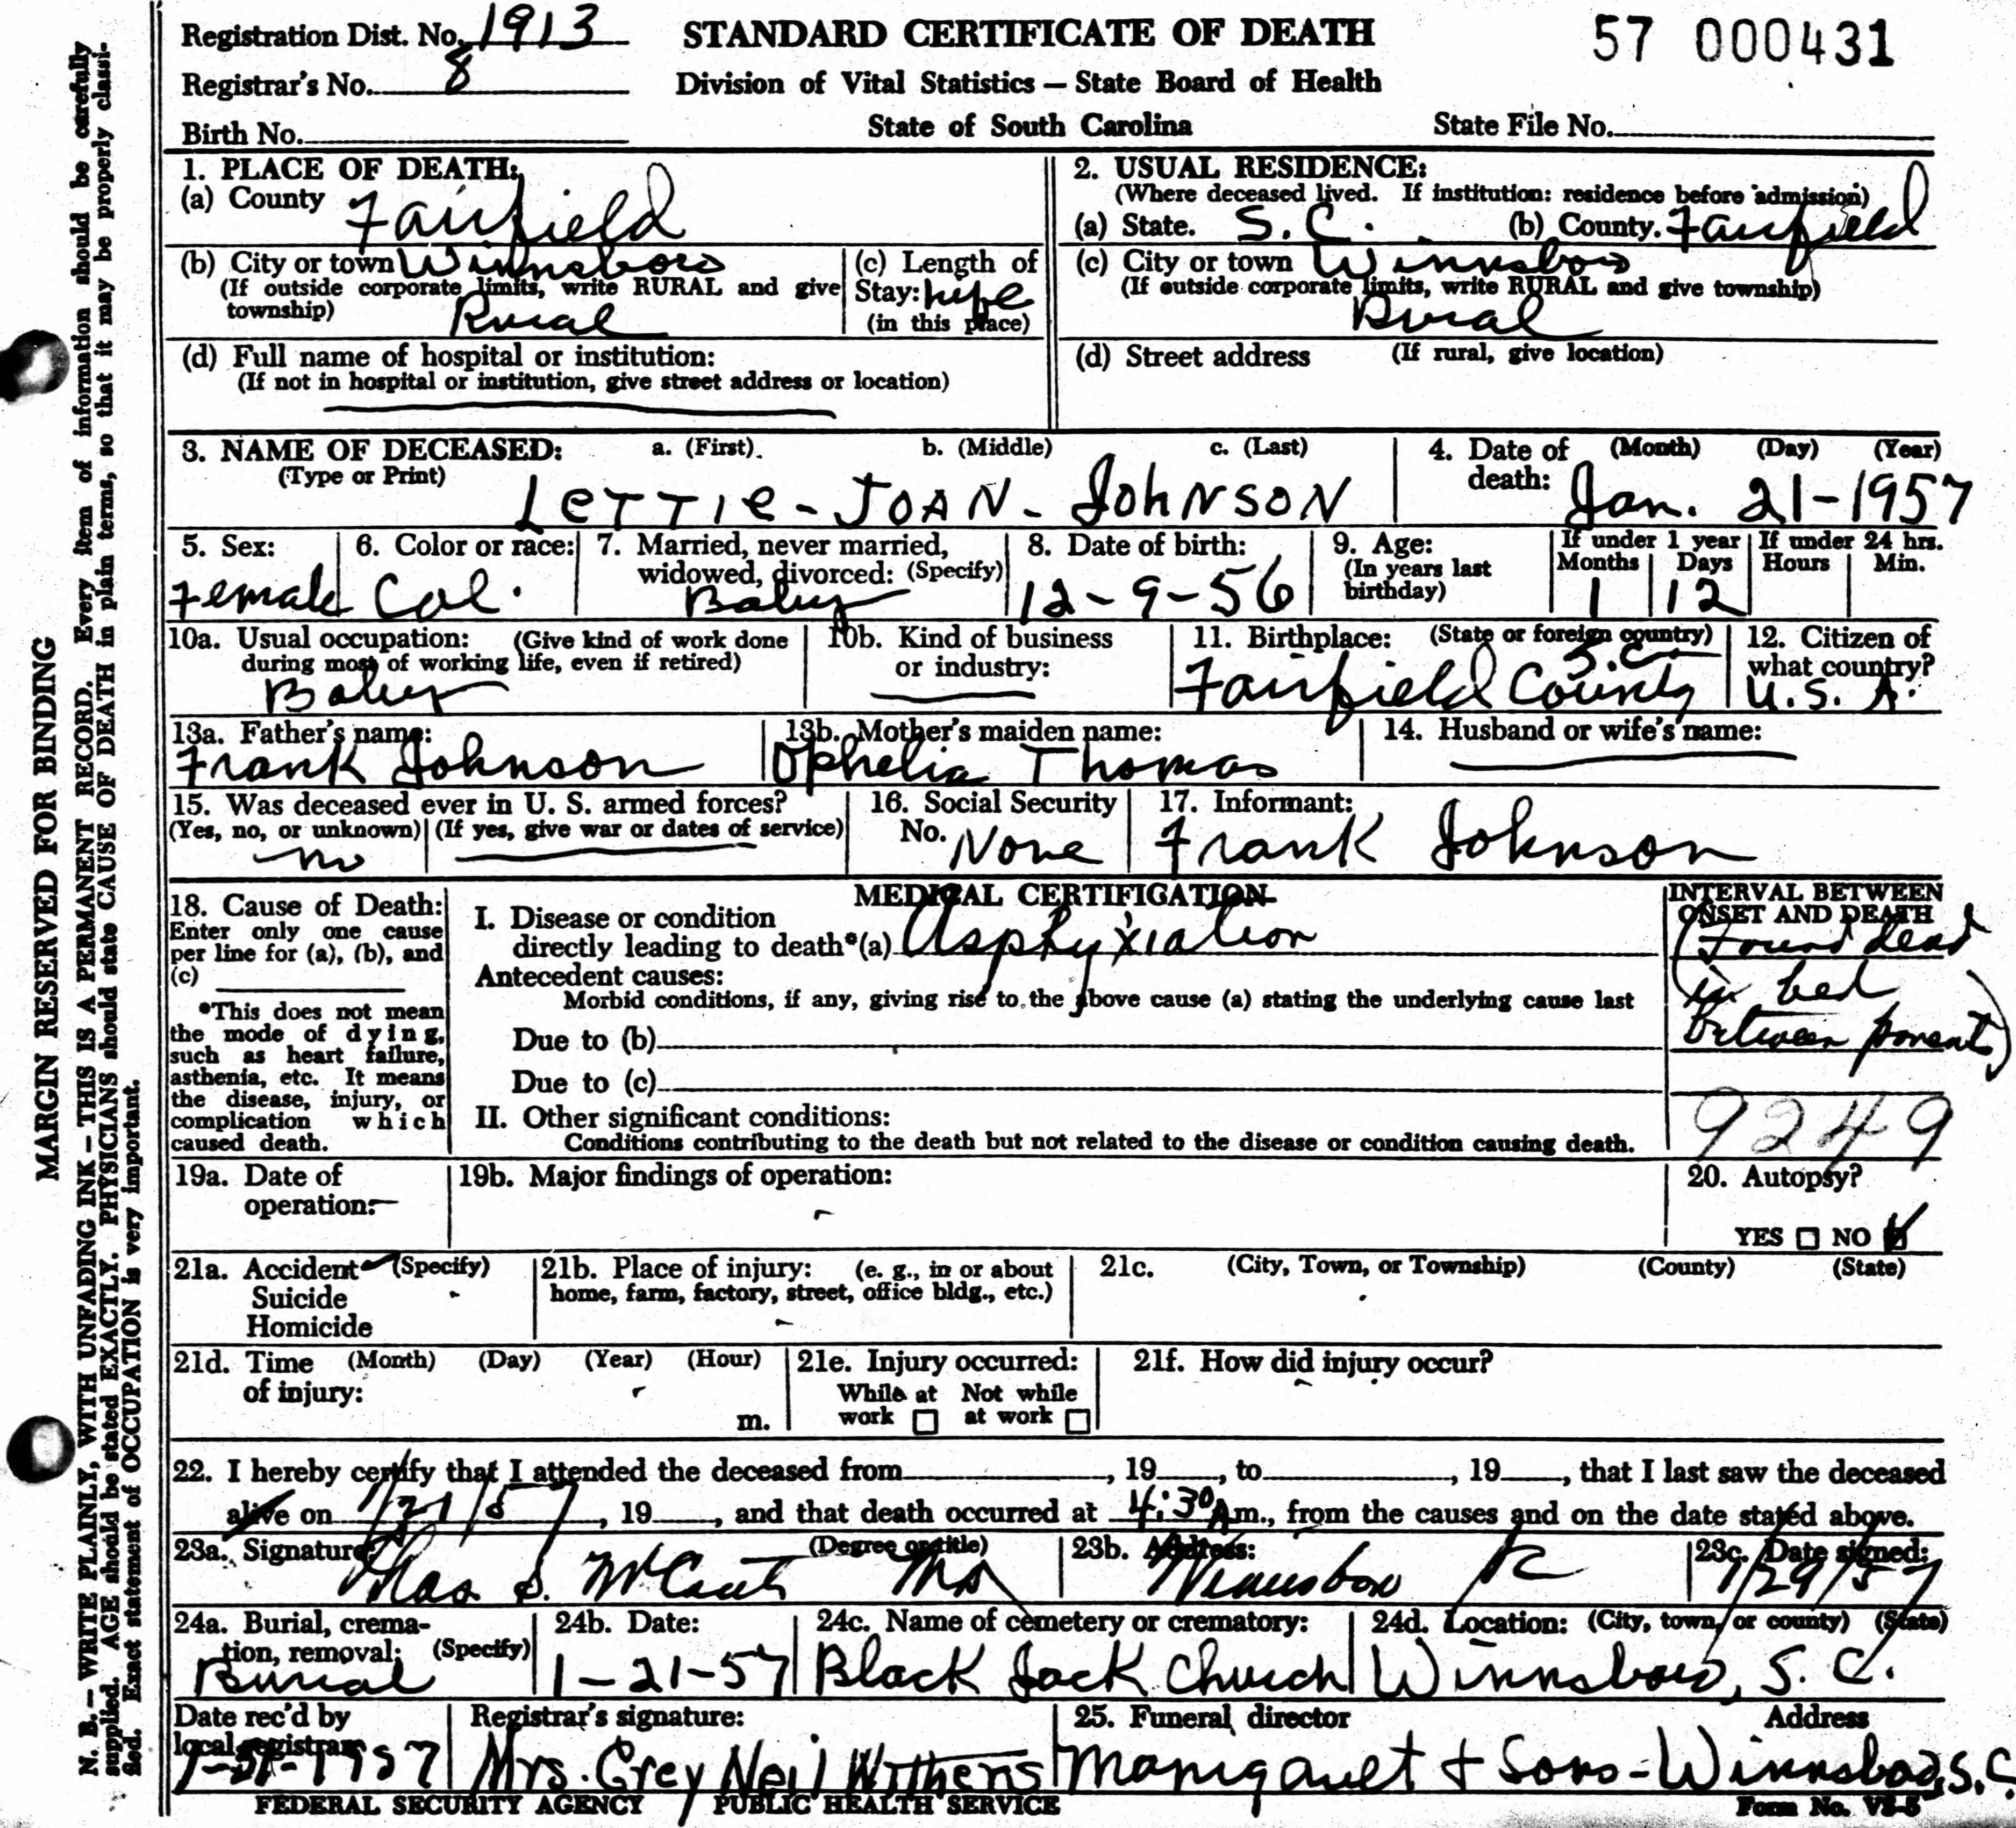 Registration Dist. No. 1913 STANDARD CERTIFICATE OF DEATH 57 000431
Registrar's No. 8 Division of Vital Statistics — State Board of Health
Birth No. State of South Carolina State File No.
1. PLACE OF DEATH:
(a) County Fairfield
(b) City or town Winnsboro
(If outside corporate limits, write RURAL and give township) Rural
(c) Length of Stay: life
(in this place)
(d) Full name of hospital or institution:
(If not in hospital or institution, give street address or location)
2. USUAL RESIDENCE:
(Where deceased lived. If institution: residence before admission)
(a) State. S. C. (b) County. Fairfield
(c) City or town Winnsboro
(If outside corporate limits, write RURAL and give township)
Rural
(d) Street address (If rural, give location)
3. NAME OF DECEASED: a. (First). b. (Middle) c. (Last)
(Type or Print) LeTTIe - JOAN - JohNSON
4. Date of death: (Month) (Day) (Year)
Jan. 21-1957
5. Sex: Female
6. Color or race: Col.
7. Married, never married, widowed, divorced: (Specify)
Baby
8. Date of birth:
12-9-56
9. Age:
(In years last birthday)
If under 1 year Months 1 Days 12
If under 24 hrs. Hours Min.
10a. Usual occupation: (Give kind of work done
during most of working life, even if retired)
Baby
10b. Kind of business
or industry:
11. Birthplace: (State or foreign country)
Fairfield County S.C.
12. Citizen of
what country?
U.S. A.
13a. Father's name:
Frank Johnson
13b. Mother's maiden name:
Ophelia Thomas
14. Husband or wife's name:
15. Was deceased ever in U. S. armed forces?
(Yes, no, or unknown) (If yes, give war or dates of service)
no
16. Social Security
No. None
17. Informant:
Frank Johnson
MEDICAL CERTIFICATION
18. Cause of Death:
Enter only one cause
per line for (a), (b), and
(c)
*This does not mean
the mode of dying,
such as heart failure,
asthenia, etc. It means
the disease, injury, or
complication which
caused death.
I. Disease or condition
directly leading to death*(a) Asphyxiation
Antecedent causes:
Morbid conditions, if any, giving rise to the above cause (a) stating the underlying cause last
Due to (b)
Due to (c)
II. Other significant conditions:
Conditions contributing to the death but not related to the disease or condition causing death.
INTERVAL BETWEEN
ONSET AND DEATH
(Found dead
in bed
between parents)
9249
19a. Date of
operation:
19b. Major findings of operation:
20. Autopsy?
YES NO
21a. Accident (Specify)
Suicide
Homicide
21b. Place of injury: (e. g., in or about
home, farm, factory, street, office bldg., etc.)
21c. (City, Town, or Township) (County) (State)
21d. Time (Month) (Day) (Year) (Hour)
of injury: m.
21e. Injury occurred:
While at Not while
work at work
21f. How did injury occur?
22. I hereby certify that I attended the deceased from , 19 , to , 19 , that I last saw the deceased
alive on 1/21/57, 19 , and that death occurred at 4:30 A m., from the causes and on the date stated above.
23a. Signature: (Degree or title)
Chas S. McCants MD
23b. Address:
Winnsboro
23c. Date signed:
1/29/57
24a. Burial, crema-
tion, removal: (Specify)
Burial
24b. Date:
1-21-57
24c. Name of cemetery or crematory:
Black Jack Church
24d. Location: (City, town, or county) (State)
Winnsboro, S. C.
Date rec'd by
local registrar
1-31-1957
Registrar's signature:
Mrs. Grey Neil Withers
25. Funeral director Address
Manigault & Sons - Winnsboro, S.C.
FEDERAL SECURITY AGENCY PUBLIC HEALTH SERVICE Form No. VS-5
MARGIN RESERVED FOR BINDING
N. B.—WRITE PLAINLY, WITH UNFADING INK—THIS IS A PERMANENT RECORD. Every item of information should be carefully
supplied. AGE should be stated EXACTLY. PHYSICIANS should state CAUSE OF DEATH in plain terms, so that it may be properly classi-
fied. Exact statement of OCCUPATION is very important.